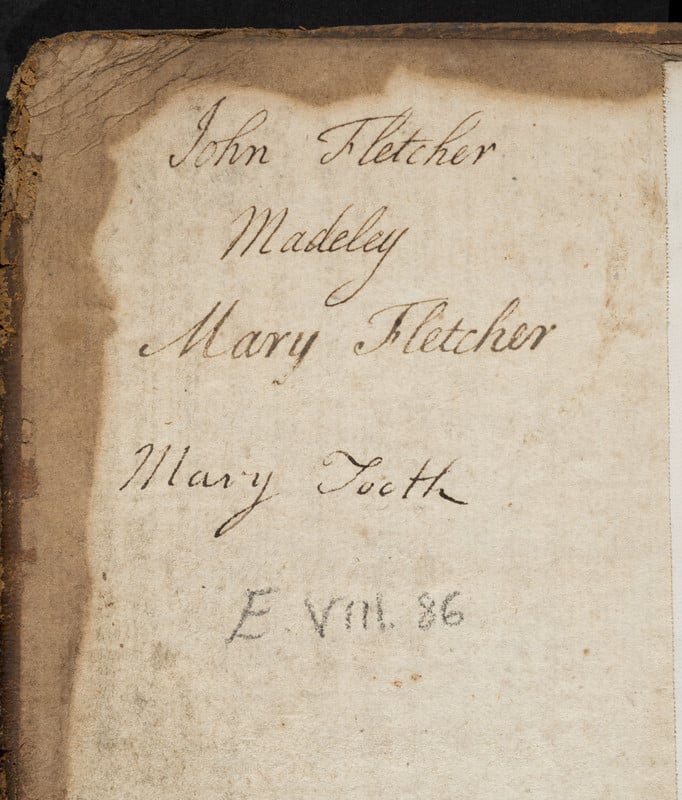 John Fletcher
Madeley
Mary Fletcher
Mary Tooth
E. VIII. 86